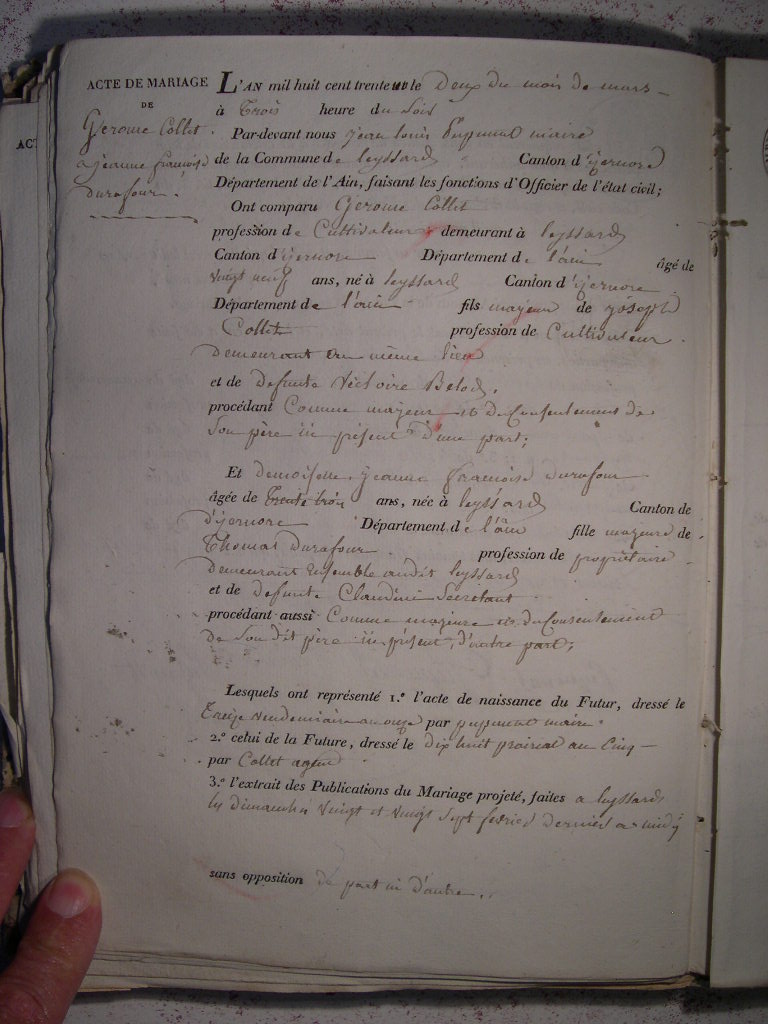 ACTE DE MARIAGE
DE
Gerome Collet
a jeanne françoise
Durafour.
AC
L'AN mil huit cent trente un le Deux du mois de mars
à Trois heure du Soir
Par-devant nous jean louis maire
de la Commune de leyssard Canton d'yzernore
Département de l'Ain, faisant les fonctions d'Officier de l'état civil;
Ont comparu Gerome Collet
profession de Cultivateur demeurant à leyssard
Canton d'yzernore Département de l'ain âgé de
vingt neuf ans, né à leyssard Canton d'yzernore
Département de l'ain fils majeur de joseph
Collet profession de Cultivateur
Demeurant au même lieu
et de defunte Victoire
procédant Comme majeur et du Consentement de
Son père ici présent d'une part;
Et demoiselle jeanne françoise durafour
âgée de Trente trois ans, née à leyssard Canton de
d'yzernore Département de l'ain fille majeure de
Thomas Durafour profession de propriétaire
demeurant Ensemble audit leyssard
et de defunte Claudine Secretant
procédant aussi Comme majeure et du Consentement
de Son dit père ici présent, d'autre part;
Lesquels ont représenté 1.º l'acte de naissance du Futur, dressé le
Treize vendemiaire an onze par maire
2.º celui de la Future, dressé le dix huit prairial an Cinq
par Collet agent
3.º l'extrait des Publications du Mariage projeté, faites a leyssard
les Dimanches vingt et vingt Sept fevrier dernier a midy
sans opposition de part ni d'autre.